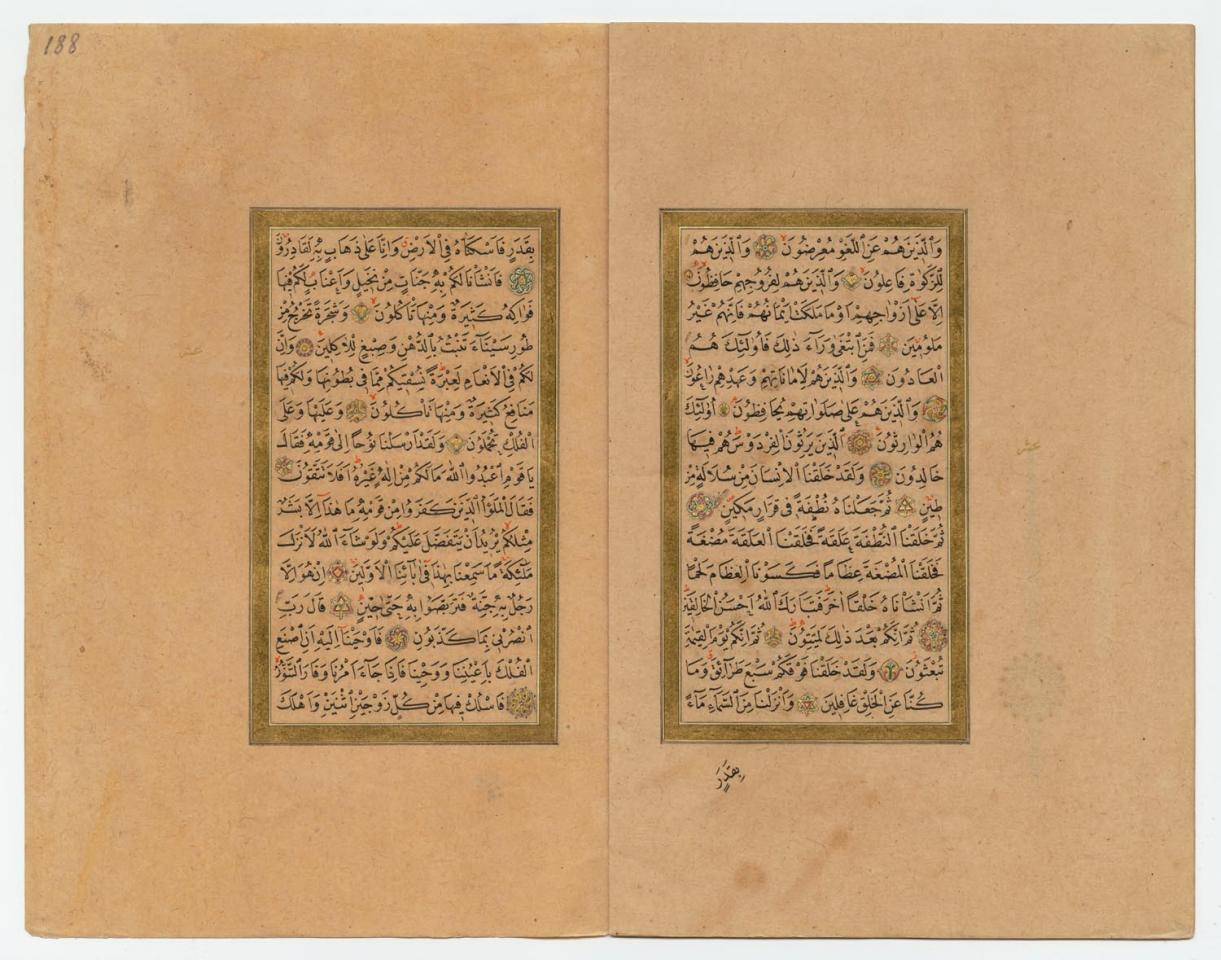 وَالَّذِينَ هُمْ عَنِ اللَّغْوِ مُعْرِضُونَ وَالَّذِينَ هُمْ
لِلزَّكٰوةِ فَاعِلُونَ وَالَّذِينَ هُمْ لِفُرُوجِهِمْ حَافِظُونَ
اِلَّا عَلٰى اَزْوَاجِهِمْ اَوْ مَا مَلَكَتْ اَيْمَانُهُمْ فَاِنَّهُمْ غَيْرُ
مَلُومِينَ فَمَنِ ابْتَغٰى وَرَاءَ ذٰلِكَ فَاُولٰئِكَ هُمُ
الْعَادُونَ وَالَّذِينَ هُمْ لِاَمَانَاتِهِمْ وَعَهْدِهِمْ رَاعُونَ
وَالَّذِينَ هُمْ عَلٰى صَلَوَاتِهِمْ يُحَافِظُونَ اُولٰئِكَ
هُمُ الْوَارِثُونَ الَّذِينَ يَرِثُونَ الْفِرْدَوْسَ هُمْ فِيهَا
خَالِدُونَ وَلَقَدْ خَلَقْنَا الْاِنْسَانَ مِنْ سُلَالَةٍ مِنْ
طِينٍ ثُمَّ جَعَلْنَاهُ نُطْفَةً فِي قَرَارٍ مَكِينٍ
ثُمَّ خَلَقْنَا النُّطْفَةَ عَلَقَةً فَخَلَقْنَا الْعَلَقَةَ مُضْغَةً
فَخَلَقْنَا الْمُضْغَةَ عِظَامًا فَكَسَوْنَا الْعِظَامَ لَحْمًا
ثُمَّ اَنْشَاْنَاهُ خَلْقًا اٰخَرَ فَتَبَارَكَ اللّٰهُ اَحْسَنُ الْخَالِقِينَ
ثُمَّ اِنَّكُمْ بَعْدَ ذٰلِكَ لَمَيِّتُونَ ثُمَّ اِنَّكُمْ يَوْمَ الْقِيٰمَةِ
تُبْعَثُونَ وَلَقَدْ خَلَقْنَا فَوْقَكُمْ سَبْعَ طَرَائِقَ وَمَا
كُنَّا عَنِ الْخَلْقِ غَافِلِينَ وَاَنْزَلْنَا مِنَ السَّمَاءِ مَاءً
بِقَدَرٍ
188
بِقَدَرٍ فَاَسْكَنَّاهُ فِي الْاَرْضِ وَاِنَّا عَلٰى ذَهَابٍ بِهِ لَقَادِرُونَ
فَاَنْشَاْنَا لَكُمْ بِهِ جَنَّاتٍ مِنْ نَخِيلٍ وَاَعْنَابٍ لَكُمْ فِيهَا
فَوَاكِهُ كَثِيرَةٌ وَمِنْهَا تَاْكُلُونَ وَشَجَرَةً تَخْرُجُ مِنْ
طُورِ سَيْنَاءَ تَنْبُتُ بِالدُّهْنِ وَصِبْغٍ لِلْاٰكِلِينَ وَاِنَّ
لَكُمْ فِي الْاَنْعَامِ لَعِبْرَةً نُسْقِيكُمْ مِمَّا فِي بُطُونِهَا وَلَكُمْ فِيهَا
مَنَافِعُ كَثِيرَةٌ وَمِنْهَا تَاْكُلُونَ وَعَلَيْهَا وَعَلَى
الْفُلْكِ تُحْمَلُونَ وَلَقَدْ اَرْسَلْنَا نُوحًا اِلٰى قَوْمِهِ فَقَالَ
يَا قَوْمِ اعْبُدُوا اللّٰهَ مَا لَكُمْ مِنْ اِلٰهٍ غَيْرُهُ اَفَلَا تَتَّقُونَ
فَقَالَ الْمَلَؤُا الَّذِينَ كَفَرُوا مِنْ قَوْمِهِ مَا هٰذَا اِلَّا بَشَرٌ
مِثْلُكُمْ يُرِيدُ اَنْ يَتَفَضَّلَ عَلَيْكُمْ وَلَوْ شَاءَ اللّٰهُ لَاَنْزَلَ
مَلٰئِكَةً مَا سَمِعْنَا بِهٰذَا فِي اٰبَائِنَا الْاَوَّلِينَ اِنْ هُوَ اِلَّا
رَجُلٌ بِهِ جِنَّةٌ فَتَرَبَّصُوا بِهِ حَتّٰى حِينٍ قَالَ رَبِّ
انْصُرْنِي بِمَا كَذَّبُونِ فَاَوْحَيْنَا اِلَيْهِ اَنِ اصْنَعِ
الْفُلْكَ بِاَعْيُنِنَا وَوَحْيِنَا فَاِذَا جَاءَ اَمْرُنَا وَفَارَ التَّنُّورُ
فَاسْلُكْ فِيهَا مِنْ كُلٍّ زَوْجَيْنِ اثْنَيْنِ وَاَهْلَكَ